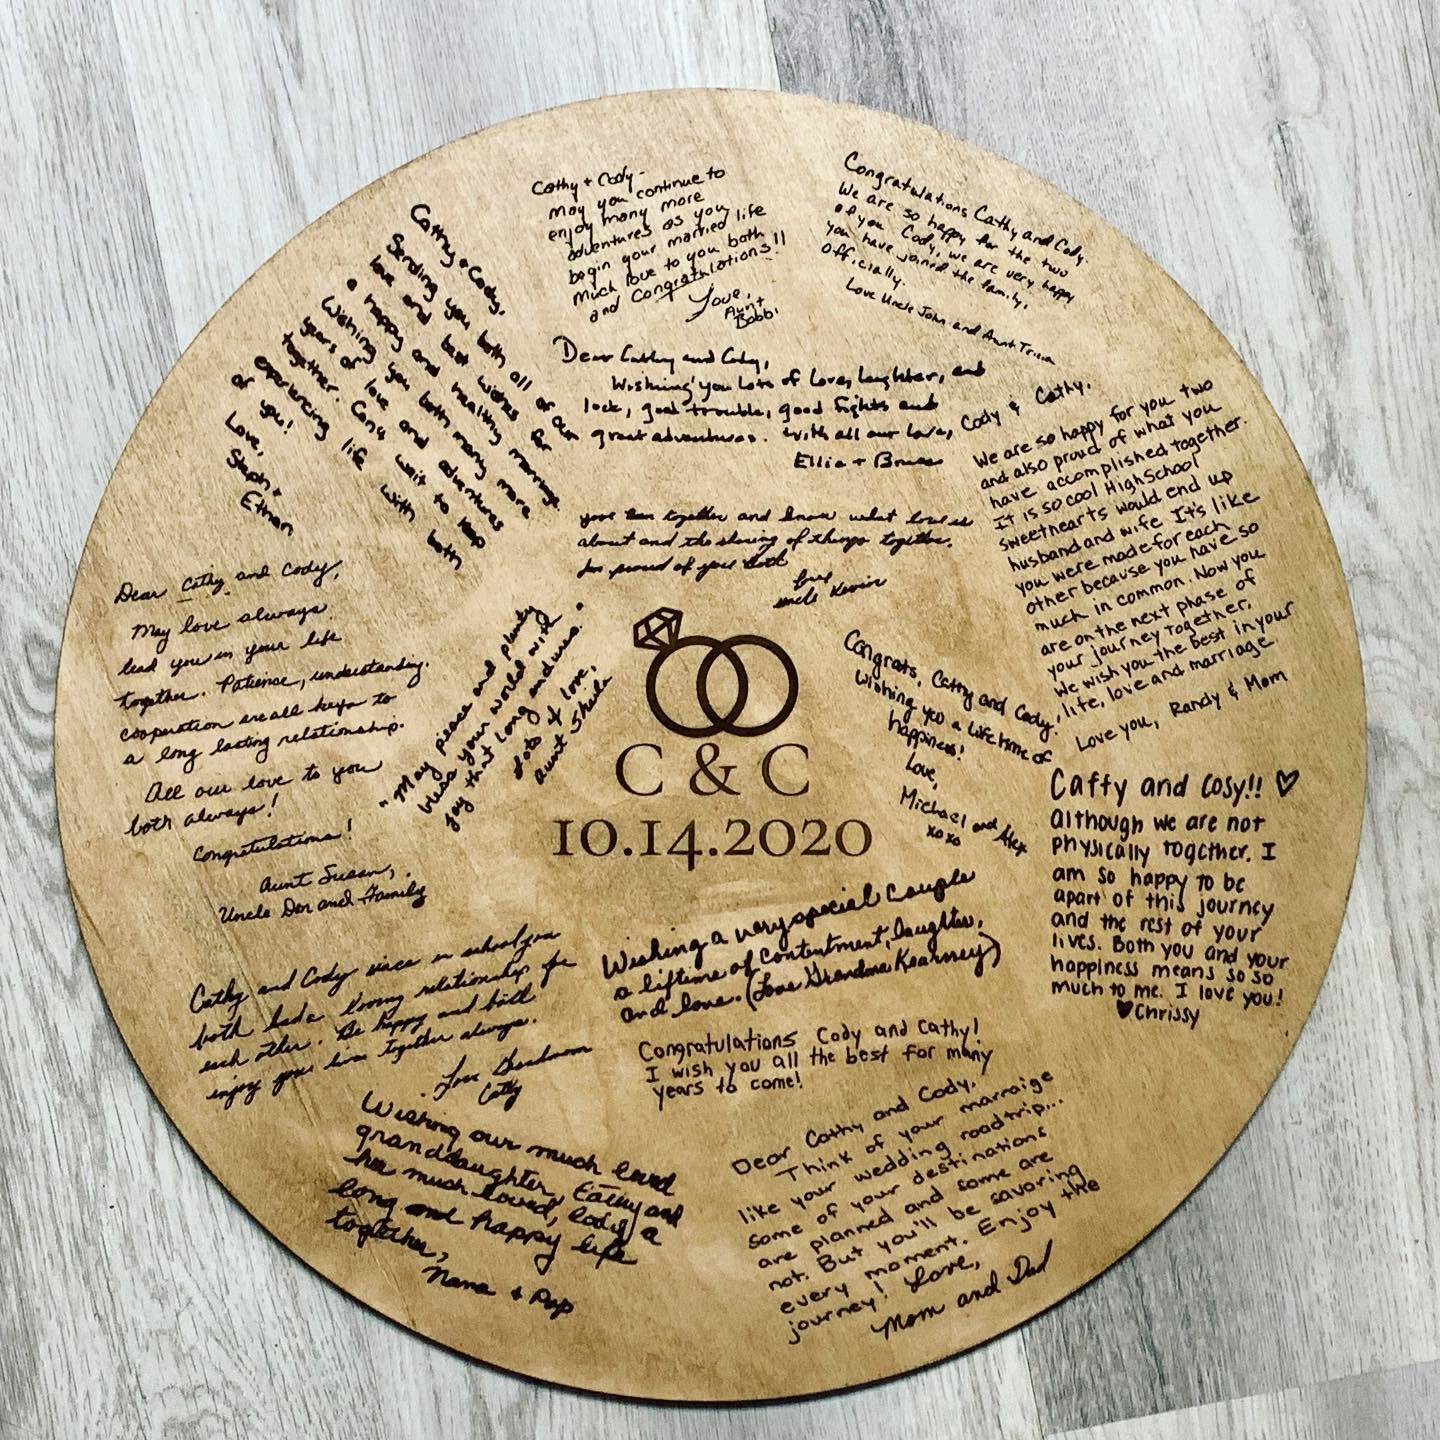 Cathy + Cody -
may you continue to
enjoy many more
adventures as you
begin your married life
much love to you both
and Congratulations!!
Love,
Aunt
Bobbi
Congratulations Cathy and Cody.
We are so happy for the two
of you. Cody, we are very happy
you have joined the family,
officially.
Love Uncle John and Aunt Tricia
Cathy + Cody,
Sending you both all of our
love and best wishes for
a happy and healthy marriage.
Wishing you both many more
years of love and adventures
together. Can't wait to keep
experiencing life with both
of you!
Love,
Steph +
Ethan
Dear Cathy and Cody,
Wishing you lots of love, laughter, and
luck, good trouble, good fights and
great adventures. With all our love,
Ellie + Bruce
Cody & Cathy,
We are so happy for you two
and also proud of what you
have accomplished together.
It is so cool High School
sweethearts would end up
husband and wife It's like
you were made for each
other because you have so
much in common. Now you
are on the next phase of
your journey together,
We wish you the best in your
life, love and marriage.
Love you, Randy & Mom
together and know what love is
about and the sharing of things together.
So proud of you both
love
uncle Kevin
Dear Cathy and Cody,
May love always
lead you in your life
together. Patience, understanding,
cooperation are all keys to
a long lasting relationship.
All our love to you
both always!
Congratulations!
Aunt Susan,
Uncle Don and Family
"May peace and plenty
bless your world with
joy that long endures."
Lots of love,
Aunt Sheila
C & C
10.14.2020
Congrats, Cathy and Cody!
Wishing you a lifetime of
happiness!
Love,
Michael and Alex
xoxo
Catty and Cosy!! ♡
although we are not
physically together. I
am so happy to be
apart of this journey
and the rest of your
lives. Both you and your
happiness means so so
much to me. I love you!
♥Chrissy
Wishing a very special Couple
a liftime of Contentment, laughter,
and love. (Love Grandma Kearney)
Cathy and Cody since in school you
both had a loving relationship for
each other. Be happy and both
enjoy your lives together always.
Love Grandmom
Cathy
Congratulations Cody and Cathy!
I wish you all the best for many
years to come!
Wishing our much loved
granddaughter, Cathy and
her much loved, Cody, a
long and happy life
together,
Nana + Pop
Dear Cathy and Cody,
Think of your marraige
like your wedding roadtrip...
some of your destinations
are planned and some are
not. But you'll be savoring
every moment. Enjoy the
journey! Love,
Mom and Dad